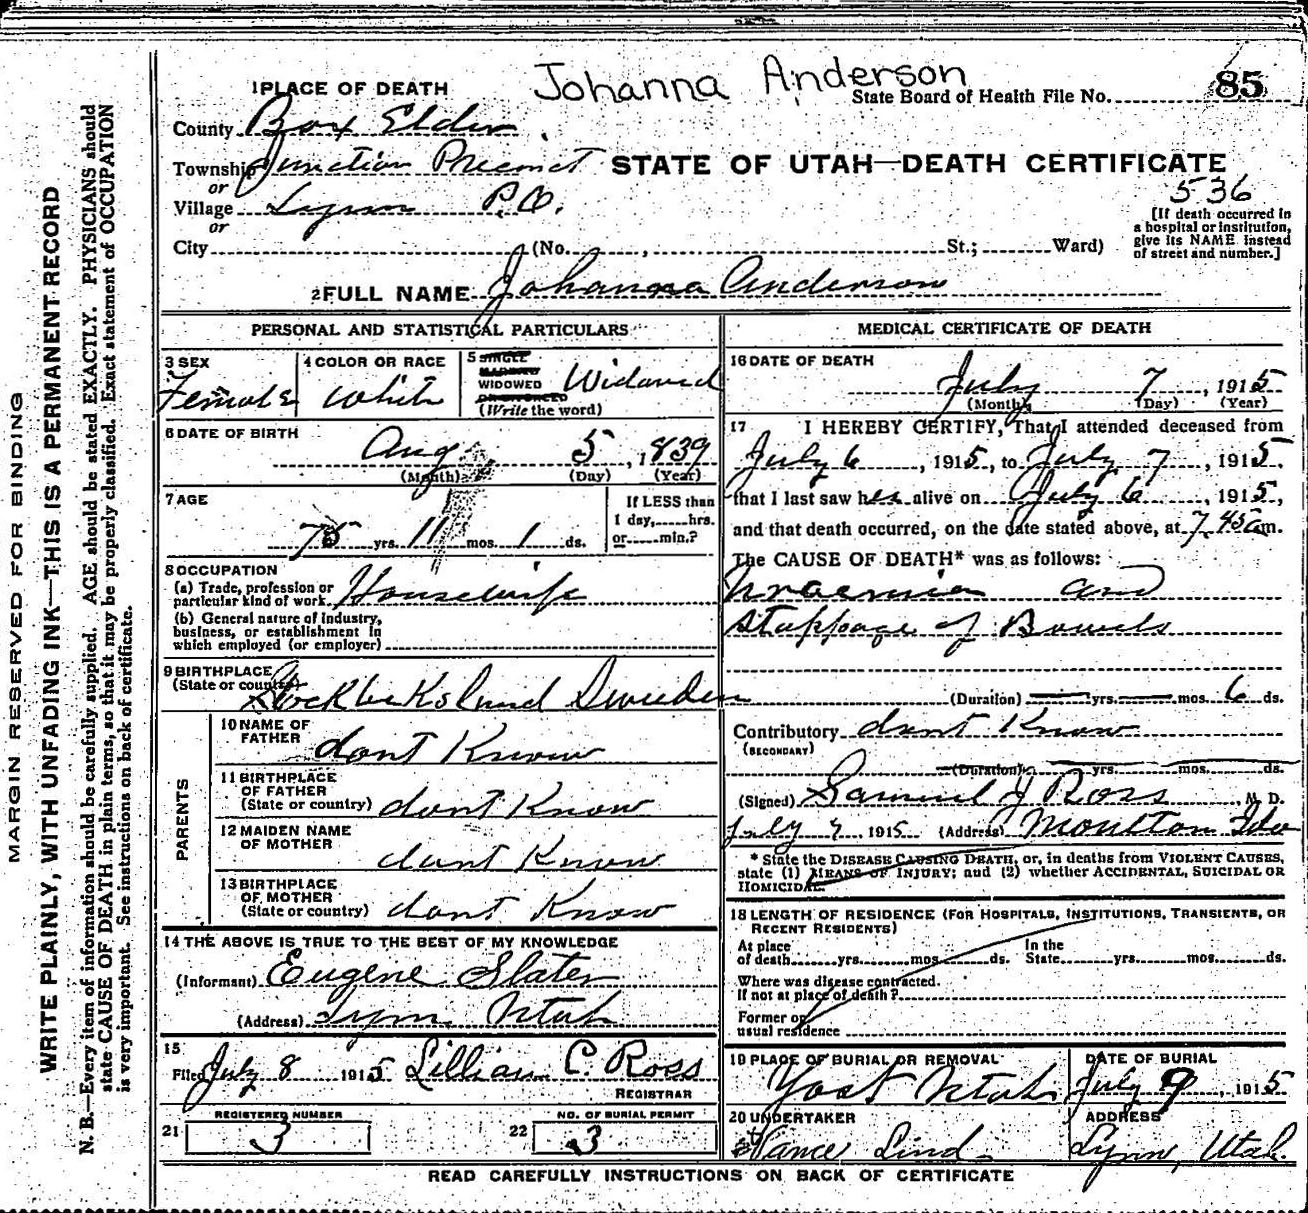 Johanna Anderson
1 PLACE OF DEATH
State Board of Health File No. 85
County Box Elder
Township Junction Precinct
STATE OF UTAH—DEATH CERTIFICATE
or
536
Village Lynn P.O.
or
[If death occurred in
a hospital or institution,
give its NAME instead
of street and number.]
City (No. , St.; Ward)
2 FULL NAME Johanna Anderson
PERSONAL AND STATISTICAL PARTICULARS
3 SEX
Female
4 COLOR OR RACE
White
5 SINGLE
MARRIED
WIDOWED
OR DIVORCED
(Write the word)
Widowed
6 DATE OF BIRTH
Aug 5, 1839
(Month) (Day) (Year)
7 AGE
75 yrs. 11 mos. 1 ds.
If LESS than
1 day, hrs.
or min.?
8 OCCUPATION
(a) Trade, profession or
particular kind of work. Housewife
(b) General nature of industry,
business, or establishment in
which employed (or employer)
9 BIRTHPLACE
(State or country) Sweden
PARENTS
10 NAME OF
FATHER dont Know
11 BIRTHPLACE
OF FATHER
(State or country) dont Know
12 MAIDEN NAME
OF MOTHER dont Know
13 BIRTHPLACE
OF MOTHER
(State or country) dont Know
14 THE ABOVE IS TRUE TO THE BEST OF MY KNOWLEDGE
(Informant) Eugene Slater
(Address) Lynn Utah
15
Filed July 8 1915 Lillian C. Ross
REGISTRAR
REGISTERED NUMBER
21 3
NO. OF BURIAL PERMIT
22 3
MEDICAL CERTIFICATE OF DEATH
16 DATE OF DEATH
July 7, 1915
(Month) (Day) (Year)
17 I HEREBY CERTIFY, That I attended deceased from
July 6, 1915, to July 7, 1915,
that I last saw her alive on July 6, 1915,
and that death occurred, on the date stated above, at 7.45 am.
The CAUSE OF DEATH* was as follows:
Uraemia and
Stoppage of Bowels
(Duration) yrs. mos. 6 ds.
Contributory dont Know
(SECONDARY)
(Duration) yrs. mos. ds.
(Signed) Samuel J Ross M. D.
July 7 1915 (Address) Moulton Ida
* State the DISEASE CAUSING DEATH, or, in deaths from VIOLENT CAUSES,
state (1) MEANS OF INJURY; and (2) whether ACCIDENTAL, SUICIDAL OR
HOMICIDAL.
18 LENGTH OF RESIDENCE (FOR HOSPITALS, INSTITUTIONS, TRANSIENTS, OR
RECENT RESIDENTS)
At place
of death yrs. mos. ds.
In the
State yrs. mos. ds.
Where was disease contracted.
If not at place of death?
Former or
usual residence
19 PLACE OF BURIAL OR REMOVAL
Yost Utah
DATE OF BURIAL
July 9, 1915
20 UNDERTAKER
Vance Lind
ADDRESS
Lynn, Utah.
READ CAREFULLY INSTRUCTIONS ON BACK OF CERTIFICATE
MARGIN RESERVED FOR BINDING
WRITE PLAINLY, WITH UNFADING INK—THIS IS A PERMANENT RECORD
N. B.—Every item of information should be carefully supplied. AGE should be stated EXACTLY. PHYSICIANS should
state CAUSE OF DEATH in plain terms, so that it may be properly classified. Exact statement of OCCUPATION
is very important. See instructions on back of certificate.